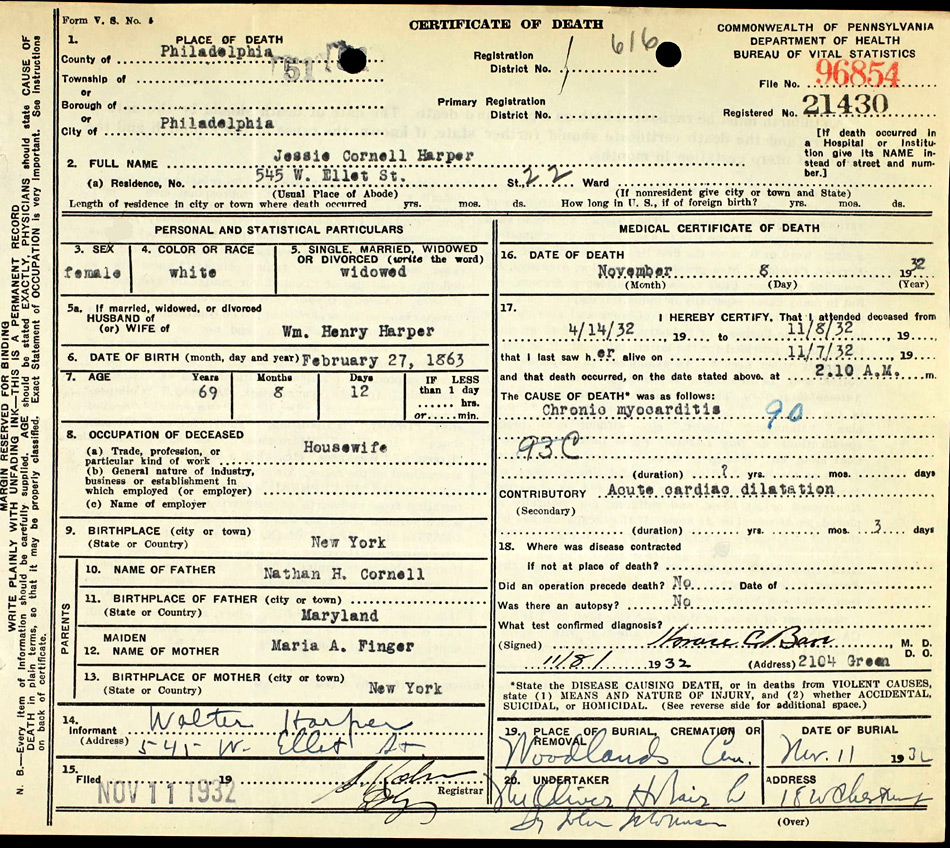 Form V. S. No. 5
CERTIFICATE OF DEATH
COMMONWEALTH OF PENNSYLVANIA
DEPARTMENT OF HEALTH
BUREAU OF VITAL STATISTICS
1. PLACE OF DEATH
County of Philadelphia
Township of
or
Borough of
or
City of Philadelphia
Registration
District No. 616
Primary Registration
District No.
File No. 96854
Registered No. 21430
[If death occurred in
a Hospital or Institu-
tion give its NAME in-
stead of street and num-
ber.]
2. FULL NAME Jessie Cornell Harper
(a) Residence, No. 545 W. Ellet St. St., 22 Ward
(Usual Place of Abode) (If nonresident give city or town and State)
Length of residence in city or town where death occurred yrs. mos. ds. How long in U. S., if of foreign birth? yrs. mos. ds.
PERSONAL AND STATISTICAL PARTICULARS
3. SEX
female
4. COLOR OR RACE
white
5. SINGLE, MARRIED, WIDOWED
OR DIVORCED (write the word)
widowed
5a. If married, widowed, or divorced
HUSBAND of
(or) WIFE of Wm. Henry Harper
6. DATE OF BIRTH (month, day and year) February 27, 1863
7. AGE Years Months Days
69 8 12
IF LESS
than 1 day
...... hrs.
or...... min.
8. OCCUPATION OF DECEASED
(a) Trade, profession, or
particular kind of work Housewife
(b) General nature of industry,
business or establishment in
which employed (or employer)
(c) Name of employer
9. BIRTHPLACE (city or town)
(State or Country) New York
PARENTS
10. NAME OF FATHER Nathan H. Cornell
11. BIRTHPLACE OF FATHER (city or town)
(State or Country) Maryland
MAIDEN
12. NAME OF MOTHER Maria A. Finger
13. BIRTHPLACE OF MOTHER (city or town)
(State or Country) New York
14.
Informant Walter Harper
(Address) 545 W. Ellet St.
15.
Filed 19
NOV 11 1932
Registrar
MEDICAL CERTIFICATE OF DEATH
16. DATE OF DEATH
November 8 1932
(Month) (Day) (Year)
17. I HEREBY CERTIFY, That I attended deceased from
4/14/32 19 to 11/8/32, 19
that I last saw her alive on 11/7/32, 19
and that death occurred, on the date stated above. at 2.10 A.M. m.
The CAUSE OF DEATH* was as follows:
Chronic myocarditis 90
93C
(duration) ? yrs. mos. days
CONTRIBUTORY Acute cardiac dilatation
(Secondary)
(duration) yrs. mos. 3 days
18. Where was disease contracted
If not at place of death?
Did an operation precede death? No Date of
Was there an autopsy? No
What test confirmed diagnosis?
(Signed) M. D.
D. O.
11/8/ 1932 (Address) 2104 Green
*State the DISEASE CAUSING DEATH, or in deaths from VIOLENT CAUSES,
state (1) MEANS AND NATURE OF INJURY, and (2) whether ACCIDENTAL,
SUICIDAL, or HOMICIDAL. (See reverse side for additional space.)
19. PLACE OF BURIAL, CREMATION OR
REMOVAL
Woodlands Cem.
DATE OF BURIAL
Nov. 11 1932
20. UNDERTAKER
Oliver H Bair Co
ADDRESS
(Over)
MARGIN RESERVED FOR BINDING
WRITE PLAINLY WITH UNFADING INK—THIS IS A PERMANENT RECORD
N. B.—Every item of information should be carefully supplied. AGE should be stated EXACTLY. PHYSICIANS should state CAUSE OF
DEATH in plain terms, so that it may be properly classified. Exact Statement of OCCUPATION is very important. See Instructions
on back of certificate.